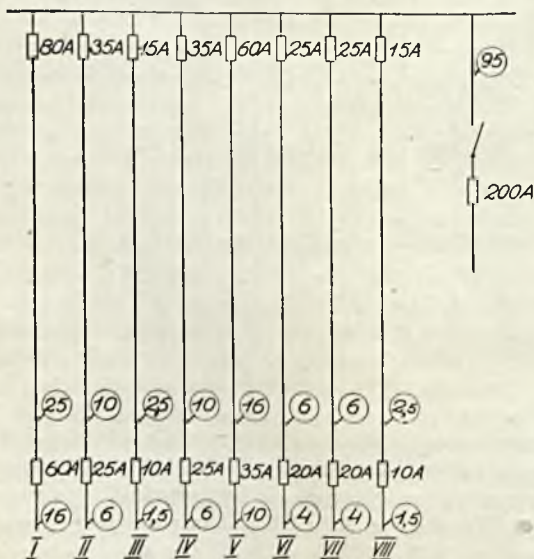 80A 35A 15A 35A 60A 25A 25A 15A
95
200A
25 10 2,5 10 16 6 6 2,5
60A 25A 10A 25A 35A 20A 20A 10A
16 6 1,5 6 10 4 4 1,5
I II III IV V VI VII VIII